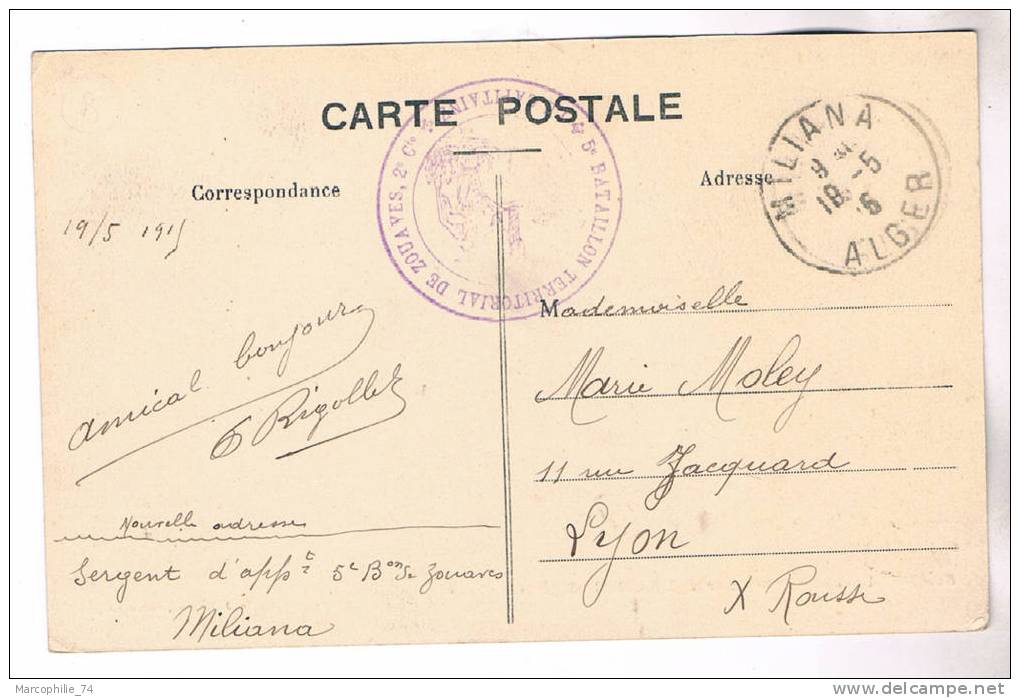 CARTE POSTALE
★ 5e BATAILLON TERRITORIAL DE ZOUAVES, 2e Cie ★
MILIANA
ALGER
Correspondance
Adresse
19/5 1915
amical bonjour
Rigollet
Nouvelle adresse
Sergent d'appt 5e Bon de Zouaves
Miliana
Mademoiselle
Marie Moley
11 rue Jacquard
Lyon
X Rousse
Marcophilie_74
www.delcampe.net